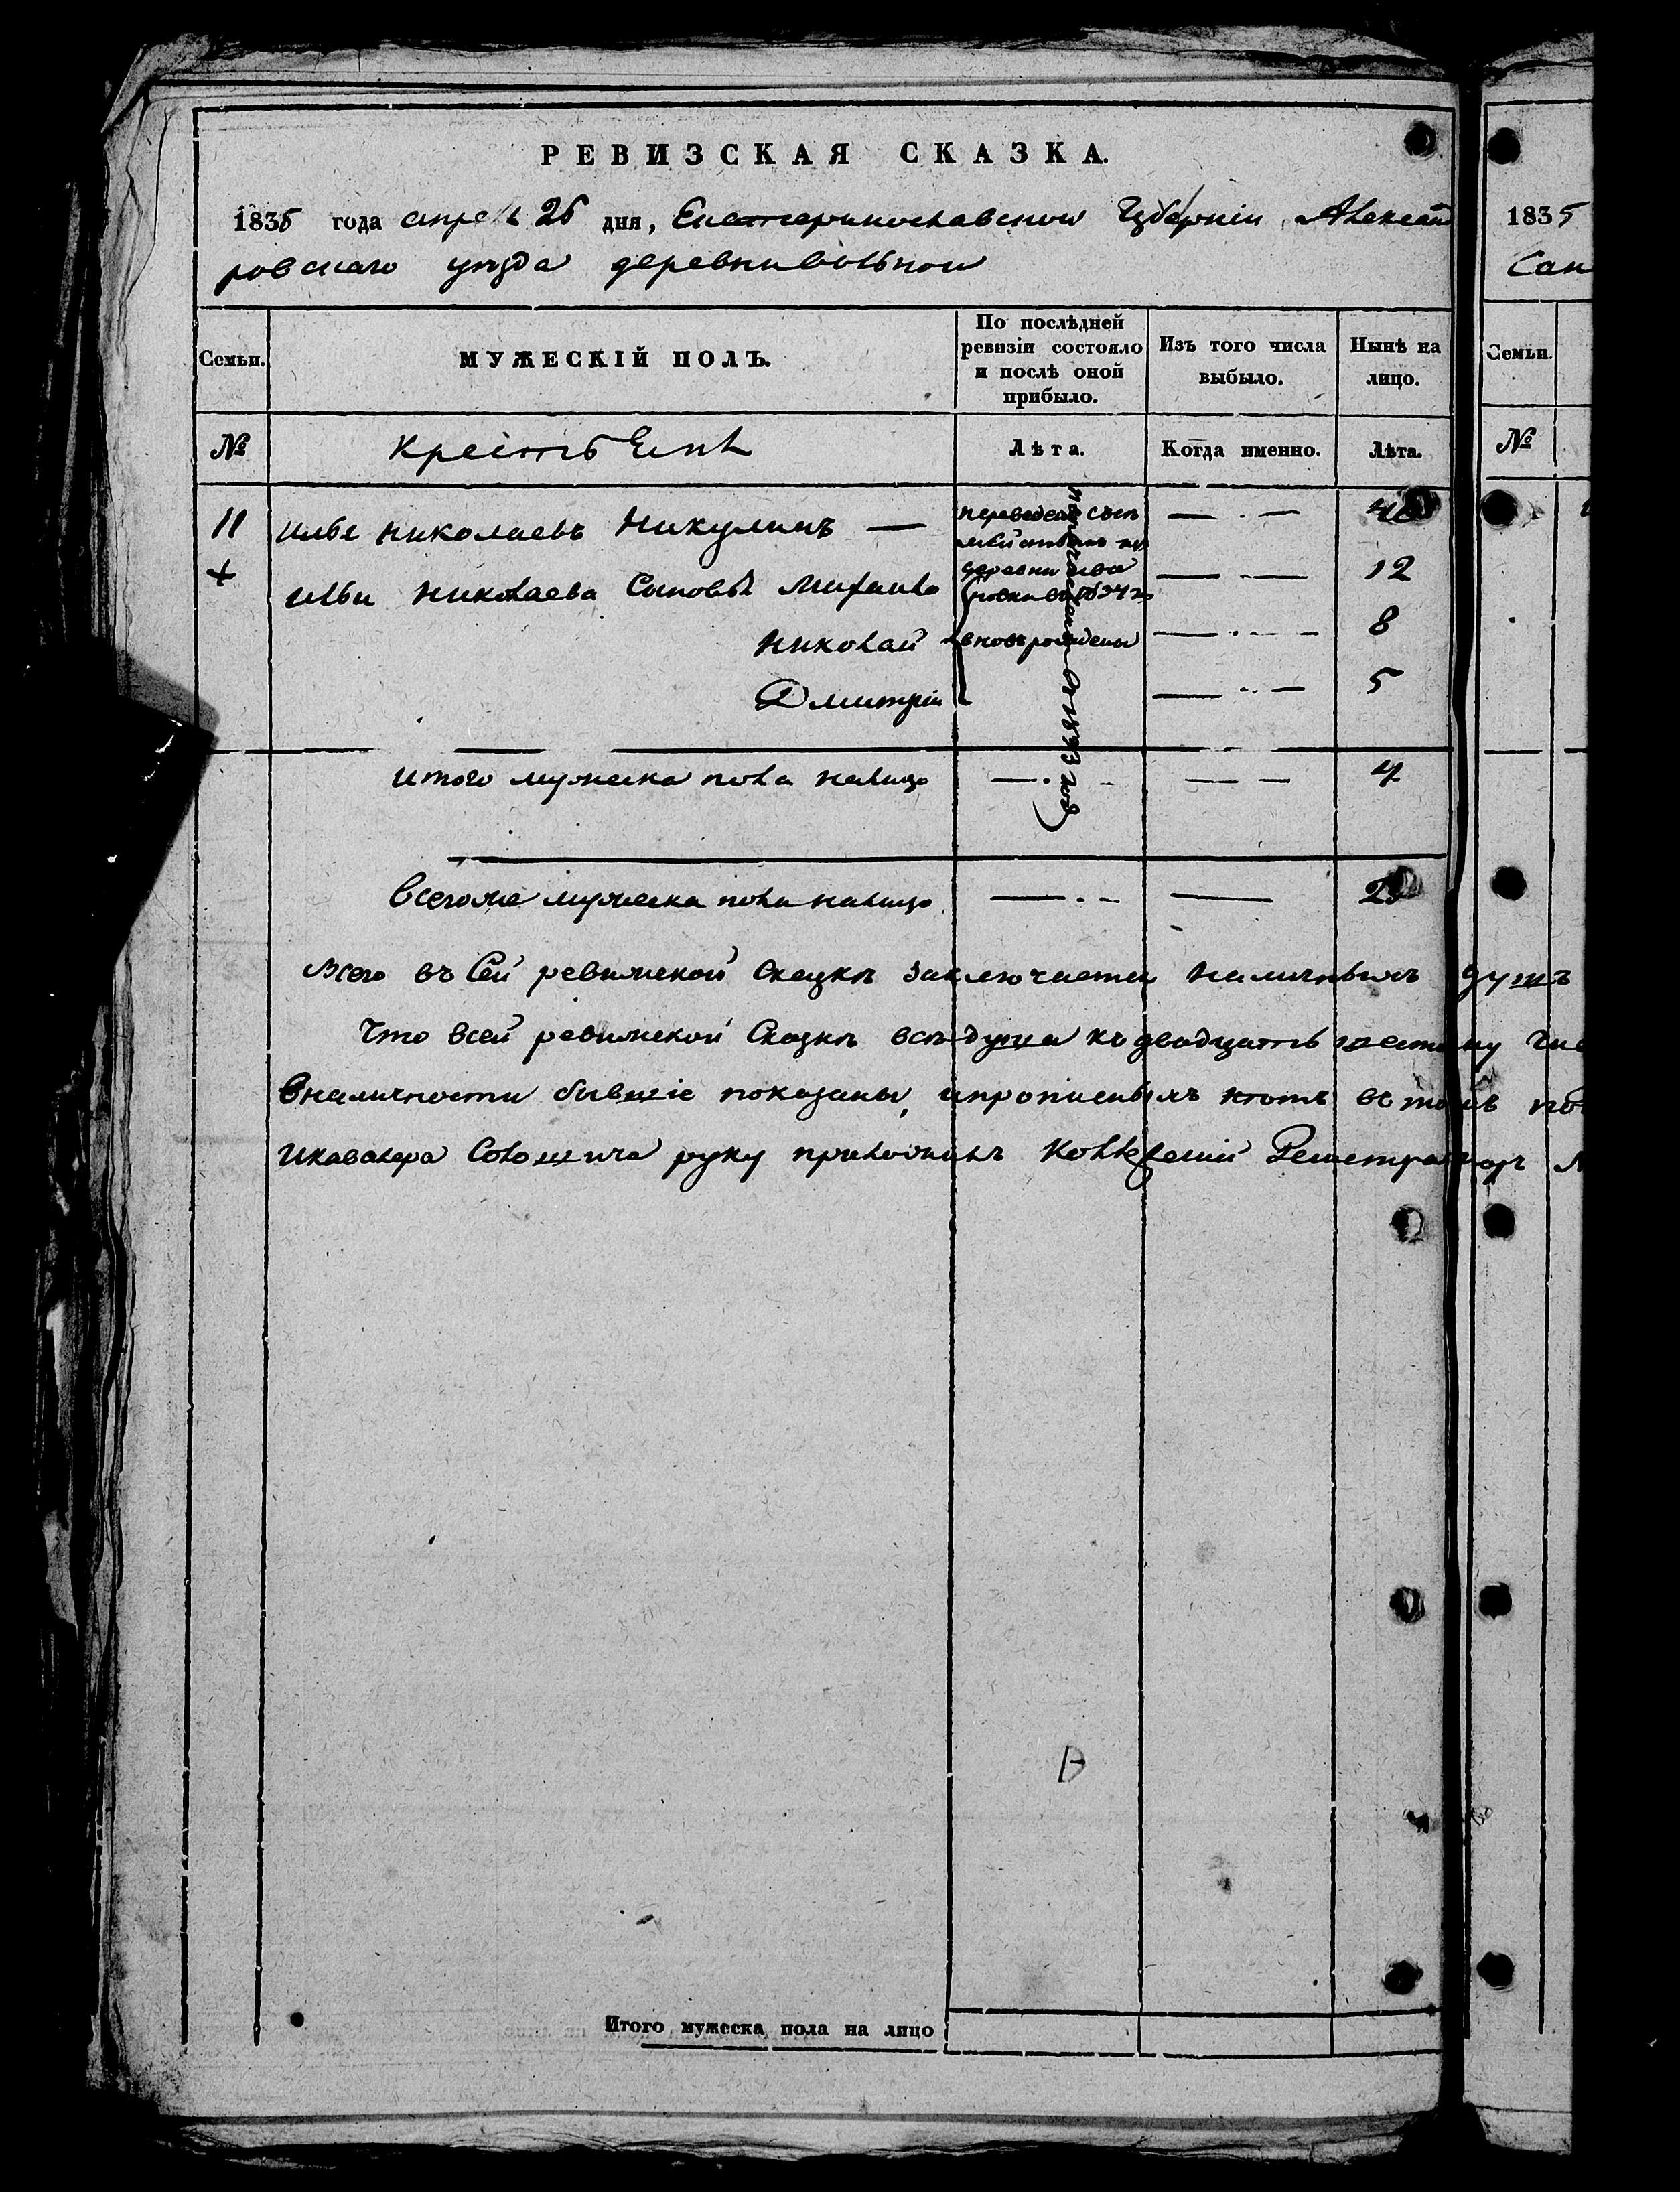 РЕВИЗСКАЯ СКАЗКА.
1835 года апреля 26 дня, Екатеринославской Губерніи Александ
ровскаго уезда деревни Вольной
Семьи.
МУЖЕСКІЙ ПОЛЪ.
По послѣдней ревизіи состояло и послѣ оной прибыло.
Изъ того числа выбыло.
Нынѣ на лицо.
№
Крестьянъ
Лѣта.
Когда именно.
Лѣта.
11 Илья Николаевъ Никулинъ — переведенъ съсе
мействомъ из
деревни
12
Ильи Николаева Сыновья Михайло
Николай вновьрождены 8
Дмитрій 5
итого мужеска пола налицо 4
Всегоже мужеска пола налицо
Всего въ Сей ревижской Сказкѣ заключается наличныхъ душъ
Что всей ревижской Сказкѣ всѣ душа къ двадцать шестому
Вналичности бывшіе показаны, ипрописнымъ нѣтъ въ томъ
Икавалера руку приложилъ Коллежскій Регистраторъ
Итого мужеска пола на лицо
1835
Семьи.
№